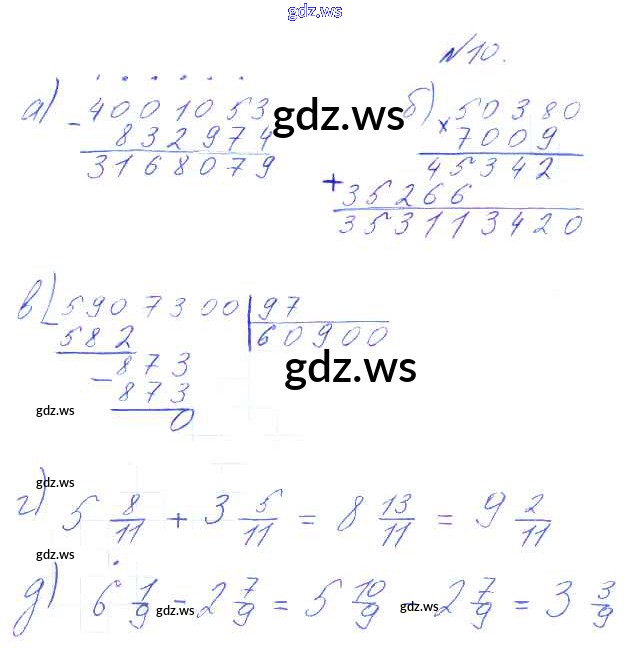 gdz.ws
№10.
а) - 4001053
832974
3168079
gdz.ws
б) × 50380
7009
45342
+ 35266
353113420
в) 5907300 | 97
582 | 60900
- 873
873
0
gdz.ws
gdz.ws
gdz.ws
г) 5 8/11 + 3 5/11 = 8 13/11 = 9 2/11
gdz.ws
д) 6 1/9 - 2 7/9 = 5 10/9 - 2 7/9 = 3 3/9
gdz.ws
gdz.ws